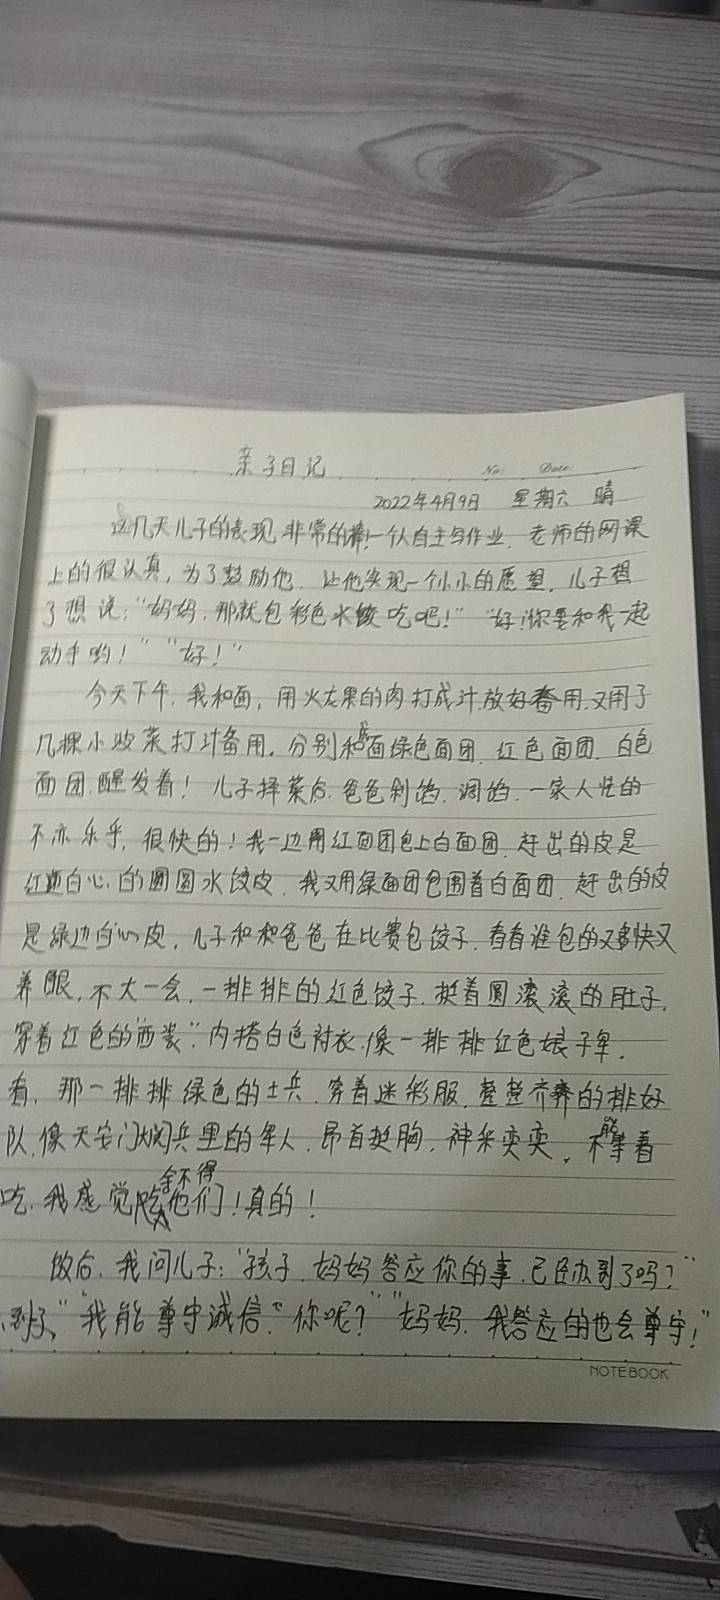 亲子日记
No: Date:
2022年4月9日 星期六 晴
这几天儿子的表现非常的棒!一个人自主写作业,老师的网课
上的很认真,为了鼓励他,让他实现一个小小的愿望,儿子想
了想说:“妈妈,那就包彩色水饺吃吧!”“好!你要和我一起
动手哟!”“好!”
今天下午,我和面,用火龙果的肉打成汁放好备用,又用了
几棵小菠菜打汁备用,分别和面绿色面团,红色面团,白色
面团,醒发着!儿子择菜后,爸爸剁馅,调馅,一家人忙的
不亦乐乎,很快的!我一边用红面团包上白面团,赶出的皮是
红边白心的圆圆水饺皮,我又用绿面团包围着白面团,赶出的皮
是绿边白心皮,儿子和和爸爸在比赛包饺子,看看谁包的又快又
养眼,不大一会,一排排的红色饺子,挺着圆滚滚的肚子,
穿着红色的“西装”,内搭白色衬衣,像一排排红色娘子军,
看,那一排排绿色的士兵,穿着迷彩服,整整齐齐的排好
队,像天安门阅兵里的军人,昂首挺胸,神采奕奕,不能拿着
吃,我感觉舍不得吃他们!真的!
饭后,我问儿子:“孩子,妈妈答应你的事,已经办到了吗?”
“到了”“我能尊守诚信,你呢?”“妈妈,我答应的也会尊守!”
NOTEBOOK